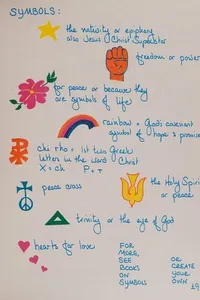 SYMBOLS:
the nativity or epiphany
also Jesus Christ Superstar
freedom or power
for peace or because they
are symbols of life
rainbow = God's covenant
symbol of hope & promise
chi rho = 1st two Greek
letters in the word Christ
X = ch P = r
peace cross
the Holy Spirit
or peace
trinity or the eye of God
hearts for love
FOR
MORE,
SEE
BOOKS
ON
SYMBOLS
OR
CREATE
YOUR
OWN